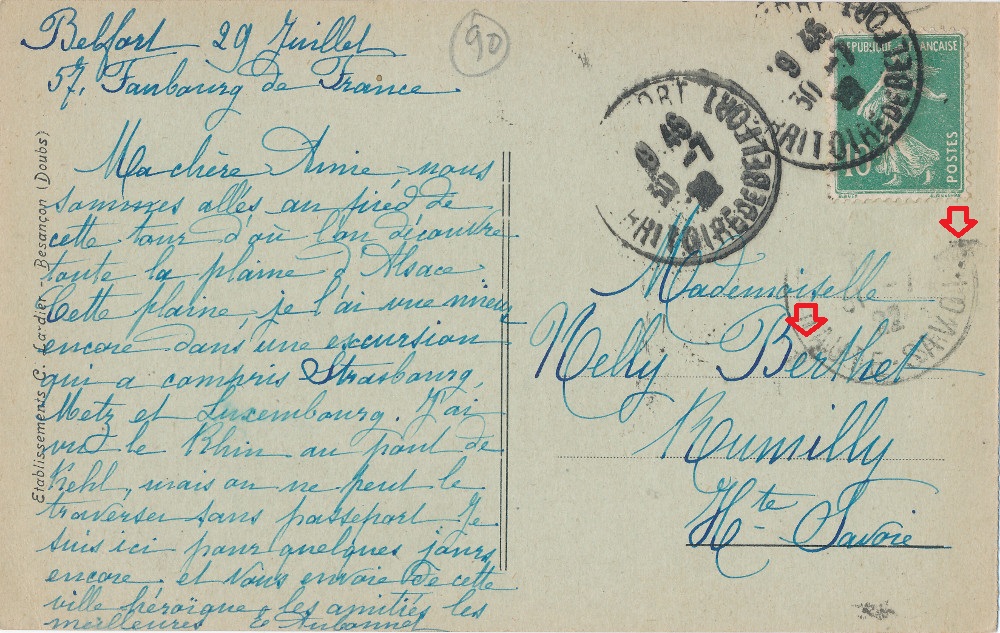 Belfort 29 Juillet
57, Faubourg de France
90
Ma chère Amie nous
sommes allés au pied de
cette tour d'où l'on découvre
toute la plaine d'Alsace
Cette plaine, je l'ai vue mieux
encore dans une excursion
qui a compris Strasbourg,
Metz et Luxembourg. J'ai
vu le Rhin au pont de
Kehl, mais on ne peut le
traverser sans passeport Je
suis ici pour quelques jours
encore et vous envoie de cette
ville héroïque les amitiés les
meilleures
Etablissements C. Lardier - Besançon (Doubs)
REPUBLIQUE FRANCAISE
10
POSTES
RRITOIRE DE BELFORT
30
RRITOIRE DE BELFORT
22
HAUTE SAVOI
Mademoiselle
Nelly Berthet
Rumilly
Hte Savoie